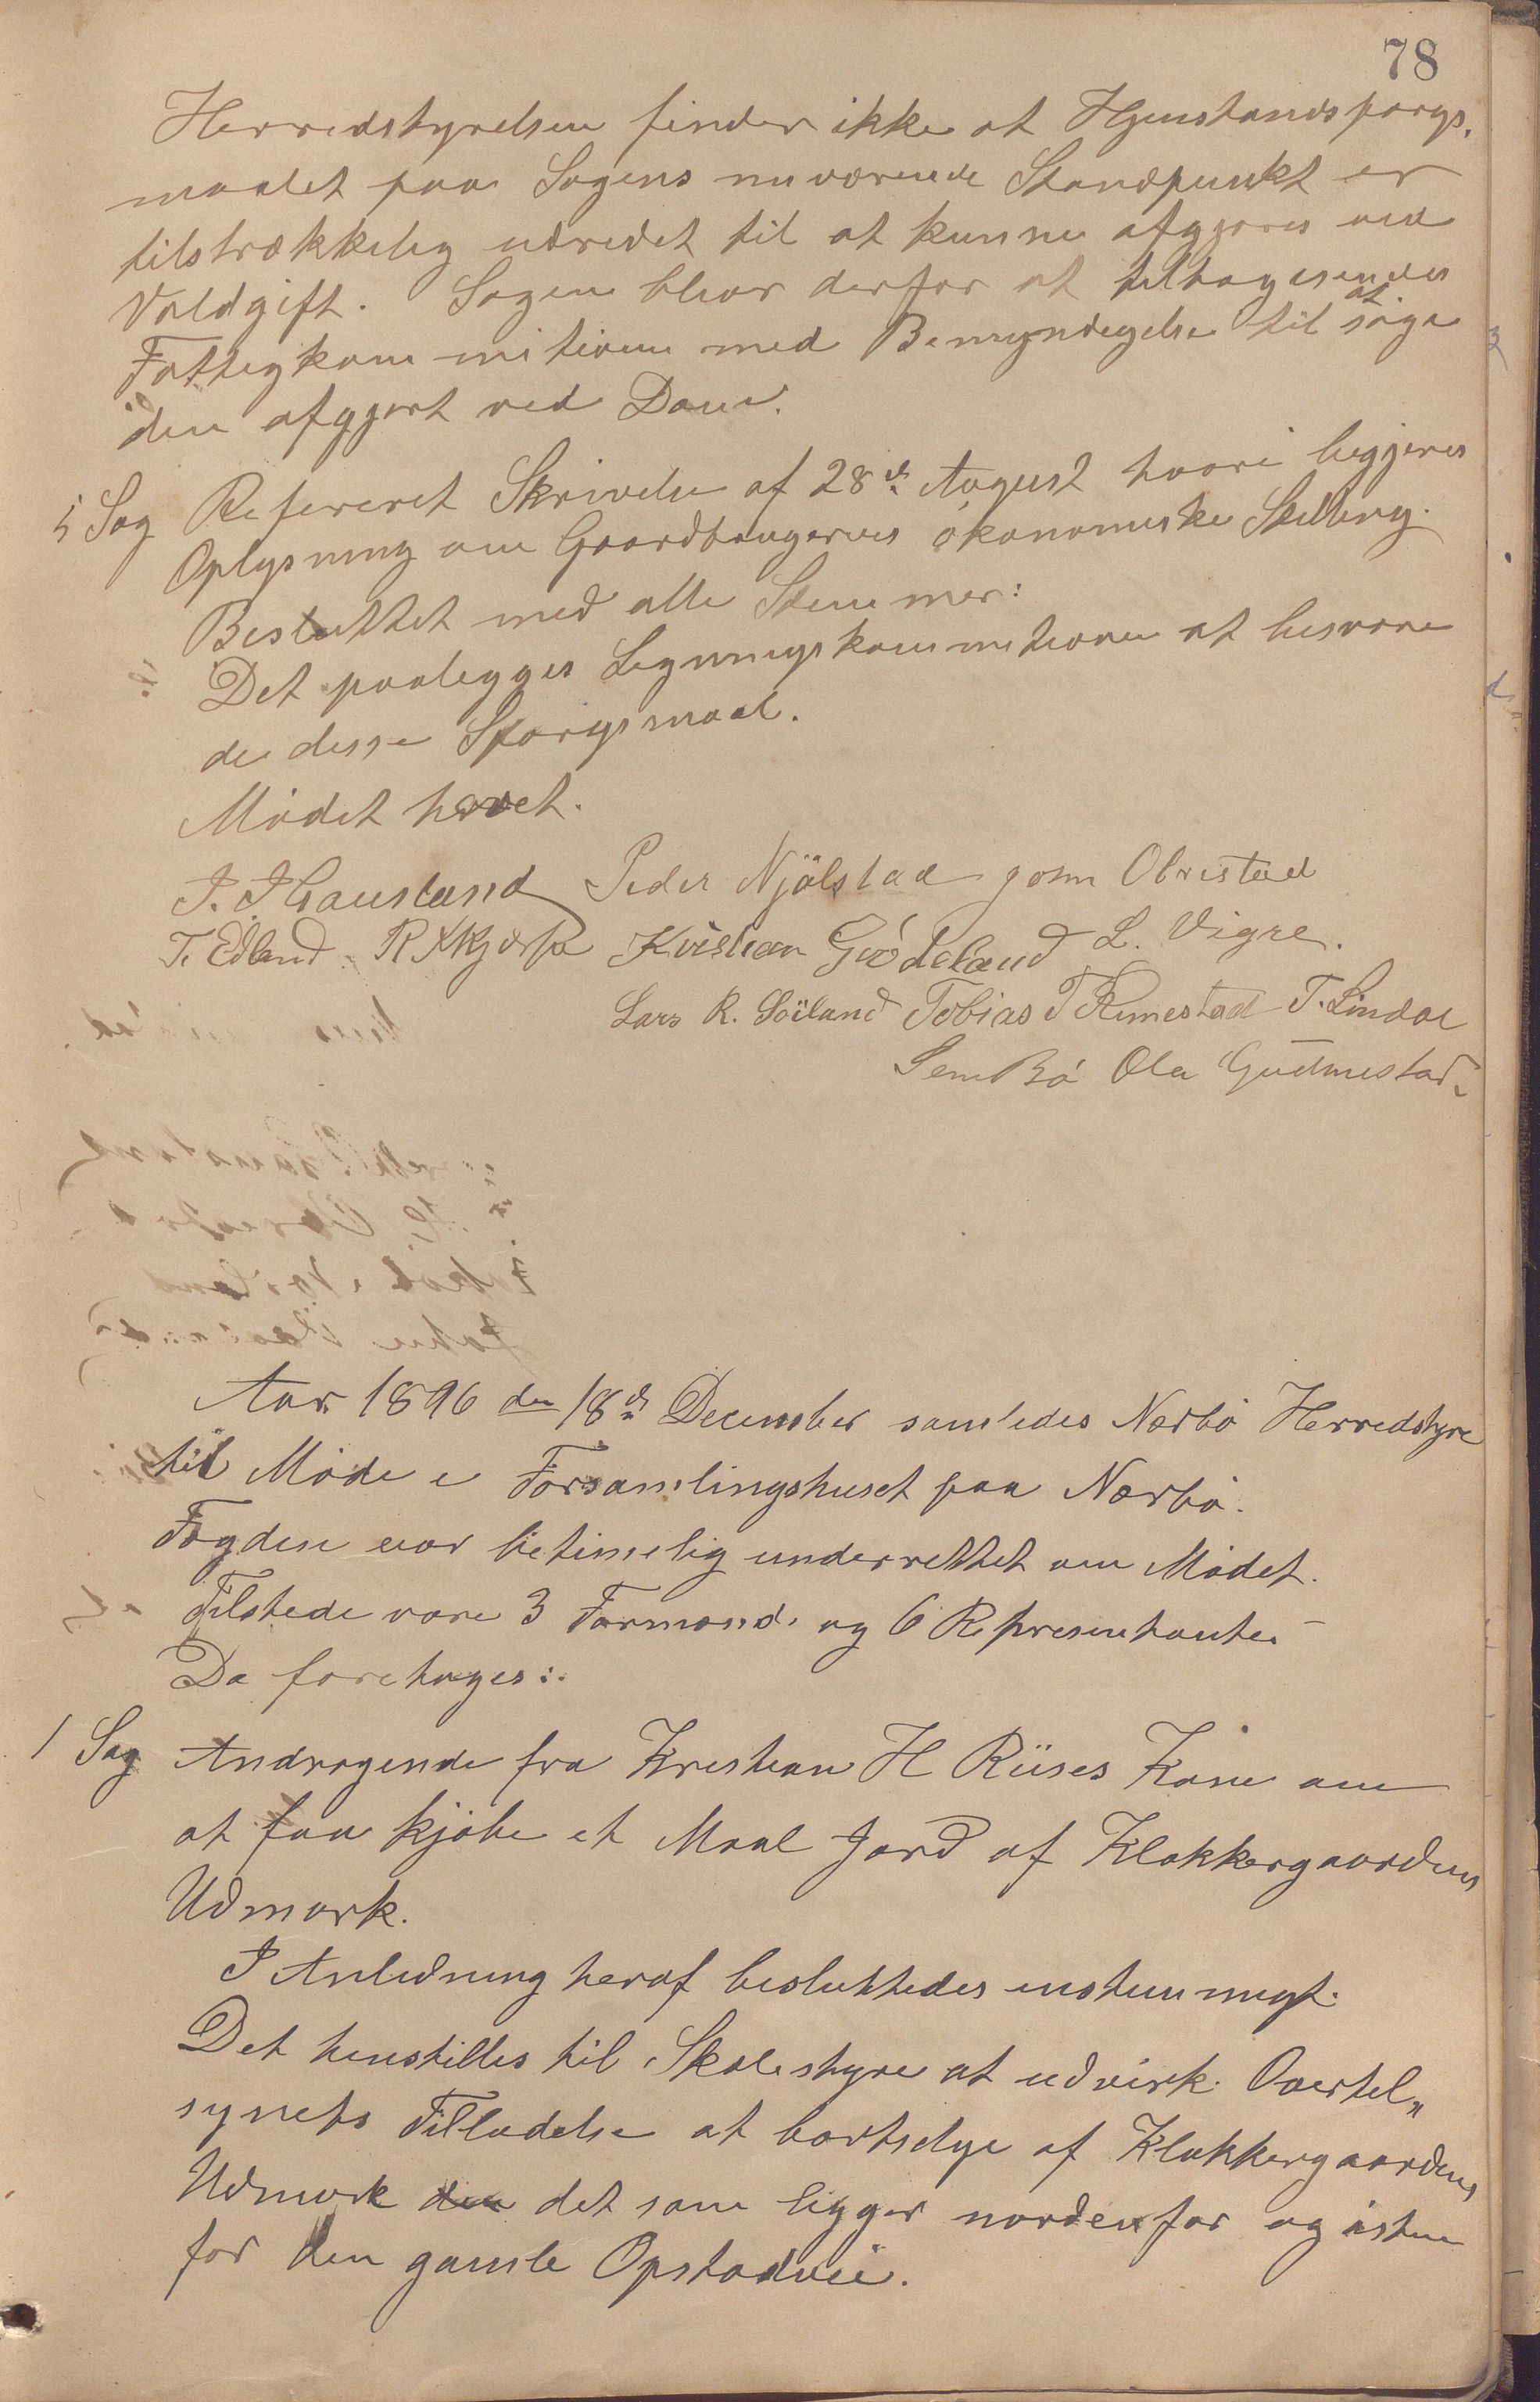 78
Herredstyrelsen finder ikke at Hjemstandsspørgs,
maalet paa Sagens nuværende Standpunkt er
tilstrækkelig udredet til at kunne afgjøres ved
Voldgift. Sagen blev derfor at tilbagesendes
Fattigkommitionen med Bemyndigelse til at søge
den afgjort ved Dom.
5 Sag Refereret Skrivelse af 28de August hvori begjeres
Oplysning om Gaardbrugernes økonomiske Stilling.
Besluttet med alle Stemmer:
Det paalegges Ligningskommitionen at besvare
de disse Spørgsmaal.
Mødet hævet.
J. Gausland Peder Njålstad John Obrestad
T. Edland R Kristian Grødeland L. Vigre.
Lars R. Söiland Tobias T Rimestad T. Lindal
Sem Bø Ola Gudmestad.
Aar 1896 den 18de December samledes Nærbø Herredstyre
til Møde i Forsamlingshuset paa Nærbø.
Fogden var betimelig underrettet om Mødet.
Tilstede vare 3 Formænd og 6 Representanter
Da foretoges:.
1 Sag Andragende fra Kristian H Riises Kone om
at faa kjøbe et Maal Jord af Klokkergaardens
Udmark.
I Anledning heraf besluttedes enstemmigt.
Det henstilles til Skolestyre at udvirk. Overtil„
synets Tilladelse at bortselge af Klokkergaardens
Udmark det som ligger nordenfor og østen
for den gamle Opstadvei.